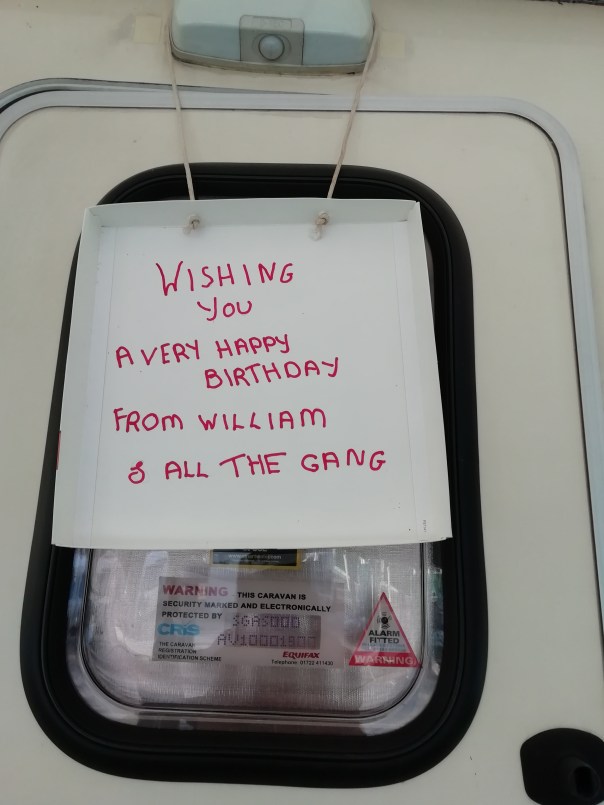 WISHING
YOU
A VERY HAPPY
BIRTHDAY
FROM WILLIAM
& ALL THE GANG
WARNING THIS CARAVAN IS
SECURITY MARKED AND ELECTRONICALLY
PROTECTED BY
CRiS
THE CARAVAN
REGISTRATION
IDENTIFICATION SCHEME
EQUIFAX
Telephone: 01722 411430
ALARM
FITTED
WARNING